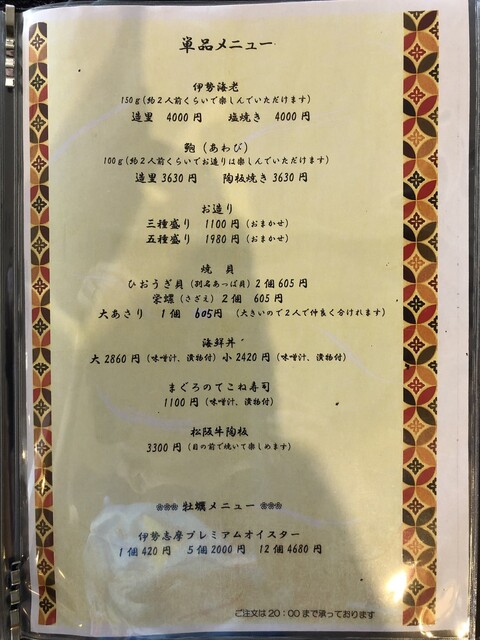 単品メニュー
伊勢海老
150g(約2人前くらいで楽しんでいただけます)
造里 4000円 塩焼き 4000円
鮑(あわび)
100g(約2人前くらいでお造りは楽しんでいただけます)
造里3630円 陶板焼き3630円
お造り
三種盛り 1100円(おまかせ)
五種盛り 1980円(おまかせ)
焼 貝
ひおうぎ貝(別名あっぱ貝)2個605円
栄螺(さざえ)2個 605円
大あさり 1個 605円 (大きいので2人で仲良く分けれます)
海鮮丼
大2860円(味噌汁、漬物付)小2420円(味噌汁、漬物付)
まぐろのてこね寿司
1100円(味噌汁、漬物付)
松阪牛陶板
3300円(目の前で焼いて楽しめます)
✿✿✿ 牡蠣メニュー ✿✿✿
伊勢志摩プレミアムオイスター
1個420円 5個2000円 12個4680円
ご注文は20:00まで承っております